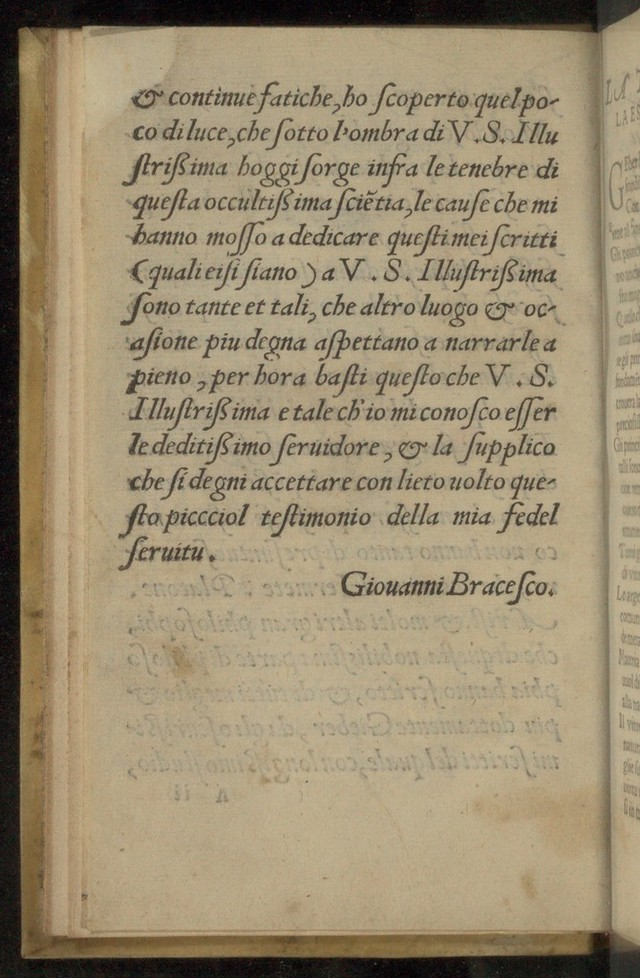 & continue fatiche, ho ſcoperto quel po-
co di luce, che ſotto l'ombra di V. S. Illu
ſtriſſima hoggi ſorge infra le tenebre di
queſta occultiſſima ſciẽtia, le cauſe che mi
hanno moſſo a dedicare queſti mei ſcritti
(quali eiſi ſiano) a V. S. Illuſtriſſima
ſono tante et tali, che altro luogo & oc-
aſione piu degna aſpettano a narrarle a
pieno, per hora baſti queſto che V. S.
Illuſtriſſima e tale ch'io mi conoſco eſſer
le deditiſſimo ſeruidore, & la ſupplico
che ſi degni accettare con lieto uolto que-
ſto piccciol teſtimonio della mia fedel
ſeruitu.
Giouanni Braceſco.